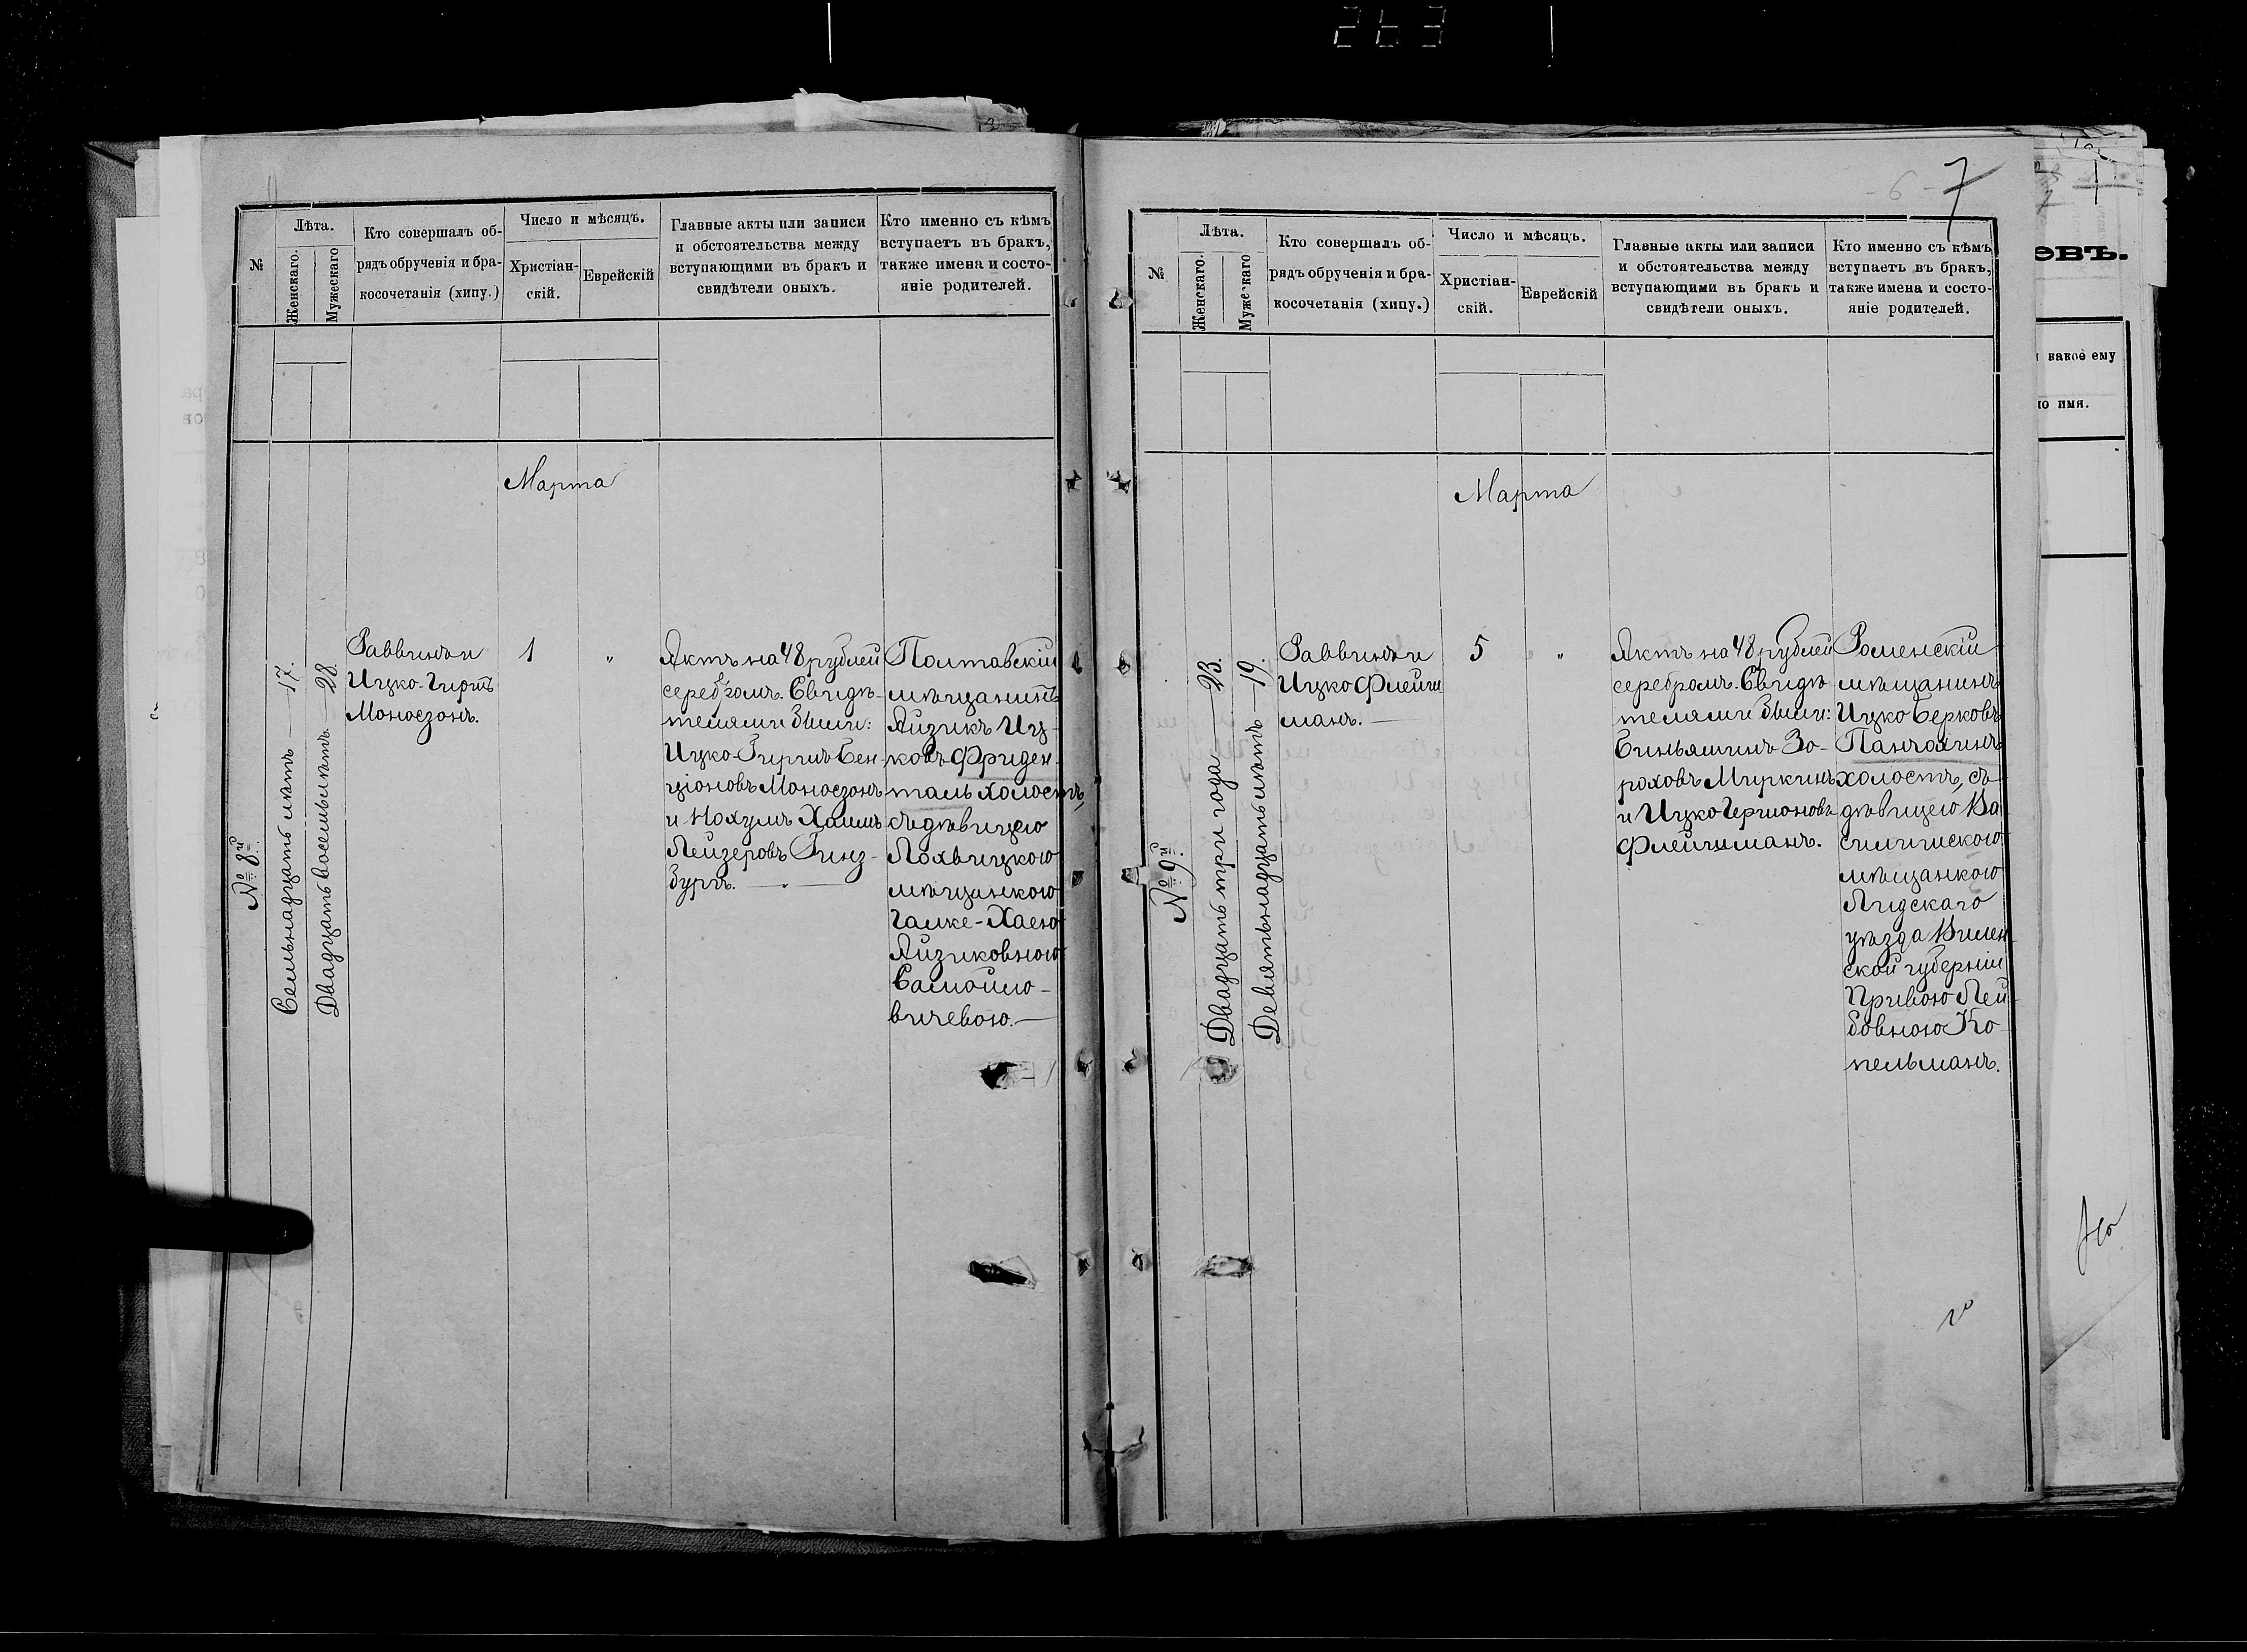 263
№
Лѣта.
Женскаго.
Мужескаго
Кто совершалъ об-
рядъ обрученія и бра-
косочетанія (хипу.)
Число и мѣсяцъ.
Христіан-
скій.
Еврейскій
Главные акты или записи
и обстоятельства между
вступающими въ бракъ и
свидѣтели оныхъ.
Кто именно съ кѣмъ
вступаетъ въ бракъ,
также имена и состо-
яніе родителей.
Марта
№ 8й
Семьнадцать лѣтъ — 17.
Двадцать восемь лѣтъ. — 28.
Раввинъ и
Ицко-Гиршъ
Моносзонъ.
1
"
Актъ на 48 рублей
серебромъ. Свидѣ-
телями были:
Ицко-Гиршъ Бен-
ціоновъ Моносзонъ
и Нохумъ Хаимъ
Лейзеровъ Гинз-
бургъ. —
Полтавскій
мѣщанинъ
Айзикъ Иц-
ковъ Фриден-
таль холостъ,
съ дѣвицею
Лохвицкою
мѣщанкою
Ганке-Хаею
Айзиковною
Самойло-
вичевою. —
6 - 7
№
Лѣта.
Женскаго.
Мужескаго
Кто совершалъ об-
рядъ обрученія и бра-
косочетанія (хипу.)
Число и мѣсяцъ.
Христіан-
скій.
Еврейскій
Главные акты или записи
и обстоятельства между
вступающими въ бракъ и
свидѣтели оныхъ.
Кто именно съ кѣмъ
вступаетъ въ бракъ,
также имена и состо-
яніе родителей.
Марта
№ 9й
Двадцать три года — 23.
Девятьнадцать лѣтъ — 19.
Раввинъ и
Ицко Флейш
манъ. —
5
"
Актъ на 48 рублей
серебромъ. Свидѣ
телями были:
Биньяминъ Зо-
роховъ Миркинъ
и Ицко Гершоновъ
Флейшманъ.
Роменскій
мѣщанинъ
Ицко Берковъ
Панчохинъ
холостъ, съ
дѣвицею Ва
силишскою
мѣщанкою
Лидскаго
уѣзда Вилен-
ской губерніи
Привою Лей-
бовною Ко-
пельманъ.
овъ.
какое ему
но имя.